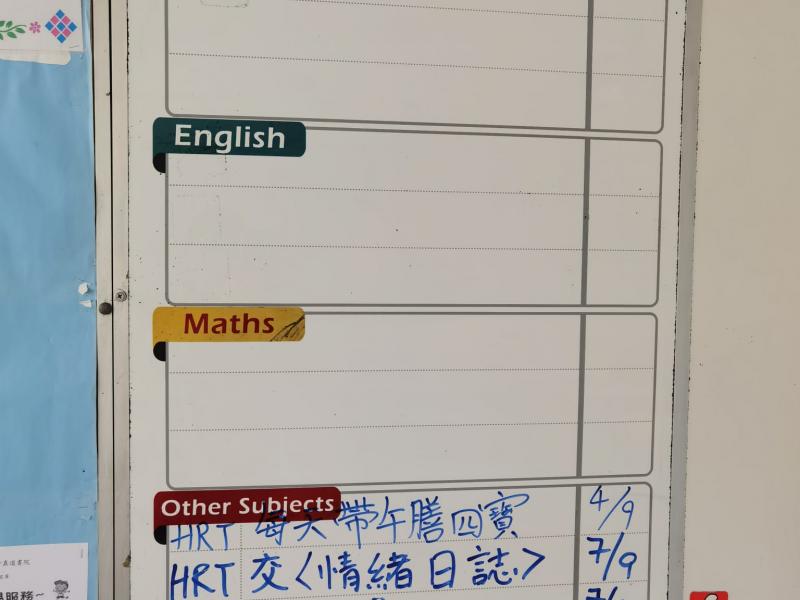 English
Maths
Other Subjects
HRT 每天帶午膳四寶 4/9
HRT 交〈情緒日誌〉 7/9
服務~